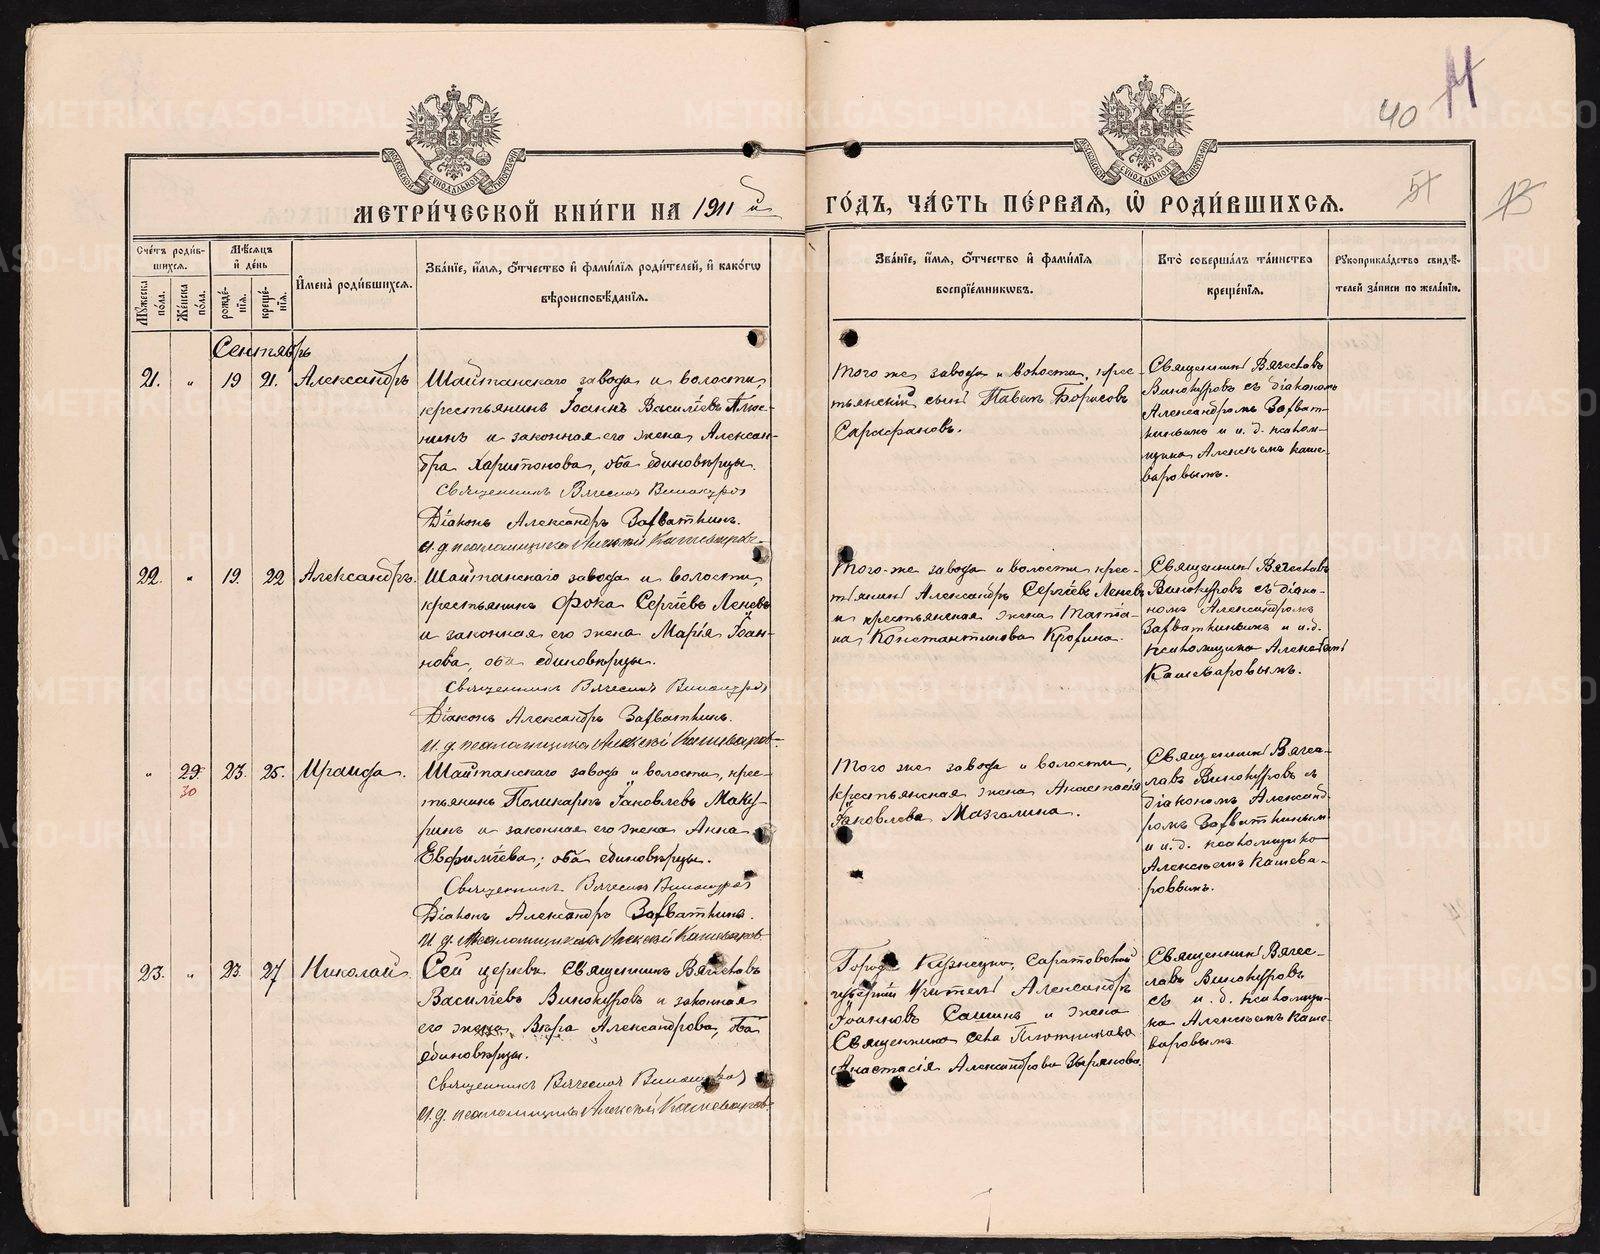 40
51
13
МОСКОВСКОЙ СѴНОДАЛЬНОЙ ТИПОГРАФІИ
МОСКОВСКОЙ СѴНОДАЛЬНОЙ ТИПОГРАФІИ
МЕТРИ́ЧЕСКОЙ КНИ́ГИ НА 1911 й
ГО́ДЪ, ЧА́СТЬ ПЕ́РВАЯ, Ѡ҆ РОДИ́ВШИХСЯ.
Сче́тъ роди́в-
шихся.
Мꙋ́жеска по́ла.
Же́нска по́ла.
Мѣ́сяцъ
и҆ де́нь
рожде́-
нїя.
креще́-
нїя.
И҆мена̀ роди́вшихся.
Зва́нїе, и҆́мя, ѻ҆́тчество и҆ фами́лїя роди́телей, и҆ како́гѡ
вѣроисповѣ́данїя.
Зва́нїе, и҆́мя, ѻ҆́тчество и҆ фами́лїя
воспрїе́мникѡвъ.
Кто̀ соверша́лъ та́инство
креще́нїя.
Рꙋкоприкла́дство свидѣ́-
телей за́писи по жела́нїю.
Сентябрь
21. „ 19 21. Александръ
Шайтанскаго завода и волости,
крестьянинъ Іоаннъ Васильевъ Плюс-
нинъ и законная его жена Алексан-
дра Харитонова, оба единовѣрцы.
Священникъ Вячеслав Винокуров
Діаконъ Александръ Завваткинъ.
И. д. псаломщика Алексѣй Кашеваров.
Того же завода и волости, крес-
тьянскій сынъ Павелъ Борисовъ
Сарафановъ.
Священникъ Вячеславъ
Винокуровъ съ діакономъ
Александромъ Завват-
кинымъ и и. д. псалом-
щика Алексѣемъ Каше-
варовымъ.
22. „ 19. 22 Александръ.
Шайтанскаго завода и волости,
крестьянинъ Фока Сергіевъ Леневъ
и законная его жена Марія Іоан-
нова, оба единовѣрцы.
Священникъ Вячеслав Винокуров
Діаконъ Александръ Завваткинъ.
И. д. псаломщика Алексѣй Кашеваров.
Того-же завода и волости крес-
тьянинъ Александръ Сергіевъ Леневъ
и крестьянская жена Татіа-
на Константинова Крофина.
Священникъ Вячеславъ
Винокуровъ съ діако-
номъ Александромъ
Завваткинымъ и и.д.
псаломщика Алексѣемъ
Кашеваровымъ.
„ 29. 23. 25. Ираида.
30
Шайтанскаго завода и волости, крес-
тьянинъ Поликарпъ Іаковлевъ Маку-
ринъ и законная его жена Анна
Евфиміева; оба единовѣрцы.
Священникъ Вячеслав Винокуров
Діаконъ Александръ Завваткинъ.
И. д. псаломщика Алексѣй Кашеваров.
Того же завода и волости,
крестьянская жена Анастасія
Іаковлева Мазгалина.
Священникъ Вячес-
лавъ Винокуровъ съ
діакономъ Александ-
ромъ Завваткинымъ
и и.д. псаломщика
Алексѣемъ Кашева-
ровымъ.
23. „ 23. 27 Николай
Сей церкви Священникъ Вячеславъ
Васильевъ Винокуровъ и законная
его жена Вѣра Александрова, оба
единовѣрцы.
Священникъ Вячеслав Винокуров
И. д. псаломщика Алексѣй Кашеваров.
Города Кузнецка, Саратовской
губерніи Учитель Александръ
Іоанновъ Сашинъ и жена
Священника села Плотникова
Анастасія Александрова Зырянова.
Священникъ Вячес-
лавъ Винокуровъ
съ и. д. псаломщи-
ка Алексѣемъ Каше-
варовымъ
METRIKI.GASO-URAL.RU